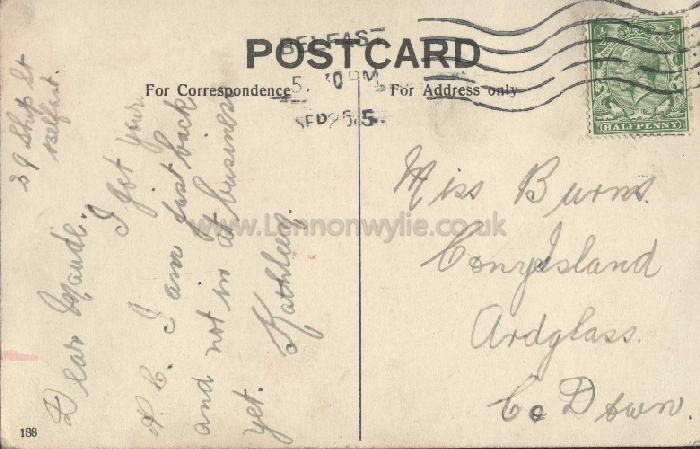 POSTCARD
For Correspondence
For Address only
BELFAST
5. 0 PM
SEP 25 5
HALFPENNY
39 Ship St
Belfast.
Dear Maude.
I got your
P.C. I am just back
and not in at business
yet. Kathleen.
Miss Burns.
ConyIsland
Ardglass.
Co Down.
www.Lennonwylie.co.uk
186